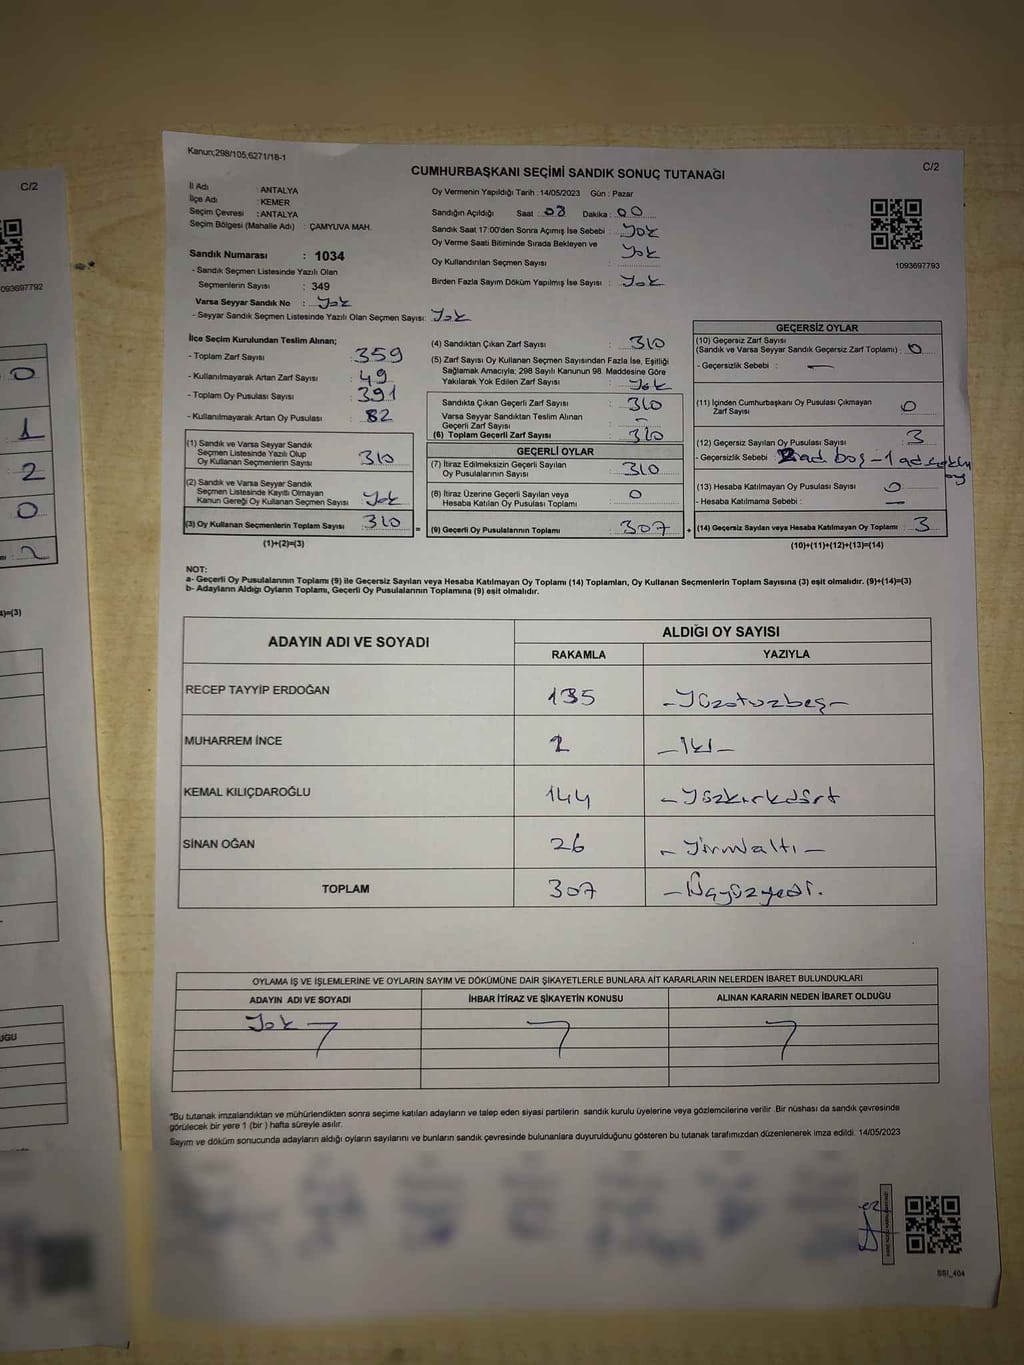 Kanun;298/105,6271/18-1
C/2
CUMHURBAŞKANI SEÇİMİ SANDIK SONUÇ TUTANAĞI
İl Adı : ANTALYA
İlçe Adı : KEMER
Seçim Çevresi : ANTALYA
Seçim Bölgesi (Mahalle Adı) : ÇAMYUVA MAH.
Sandık Numarası : 1034
- Sandık Seçmen Listesinde Yazılı Olan
Seçmenlerin Sayısı : 349
Varsa Seyyar Sandık No : Yok
- Seyyar Sandık Seçmen Listesinde Yazılı Olan Seçmen Sayısı: Yok
Oy Vermenin Yapıldığı Tarih : 14/05/2023 Gün : Pazar
Sandığın Açıldığı Saat : 08 Dakika : 00
Sandık Saat 17:00'den Sonra Açımış İse Sebebi : Yok
Oy Verme Saati Bitiminde Sırada Bekleyen ve
Oy Kullandırılan Seçmen Sayısı : Yok
Birden Fazla Sayım Döküm Yapılmış İse Sayısı : Yok
1093697793
İlçe Seçim Kurulundan Teslim Alınan;
- Toplam Zarf Sayısı : 359
- Kullanılmayarak Artan Zarf Sayısı : 49
- Toplam Oy Pusulası Sayısı : 391
- Kullanılmayarak Artan Oy Pusulası : 82
(1) Sandık ve Varsa Seyyar Sandık
Seçmen Listesinde Yazılı Olup
Oy Kullanan Seçmenlerin Sayısı : 310
(2) Sandık ve Varsa Seyyar Sandık
Seçmen Listesinde Kayıtlı Olmayan
Kanun Gereği Oy Kullanan Seçmen Sayısı : Yok
(3) Oy Kullanan Seçmenlerin Toplam Sayısı : 310
(1)+(2)=(3)
(4) Sandıktan Çıkan Zarf Sayısı : 310
(5) Zarf Sayısı Oy Kullanan Seçmen Sayısından Fazla İse, Eşitliği
Sağlamak Amacıyla, 298 Sayılı Kanunun 98. Maddesine Göre
Yakılarak Yok Edilen Zarf Sayısı : Yok
Sandıkta Çıkan Geçerli Zarf Sayısı : 310
Varsa Seyyar Sandıktan Teslim Alınan
Geçerli Zarf Sayısı : -
(6) Toplam Geçerli Zarf Sayısı : 310
GEÇERLİ OYLAR
(7) İtiraz Edilmeksizin Geçerli Sayılan
Oy Pusulalarının Sayısı : 310
(8) İtiraz Üzerine Geçerli Sayılan veya
Hesaba Katılan Oy Pusulası Toplamı : 0
= (9) Geçerli Oy Pusulalarının Toplamı : 307 +
GEÇERSİZ OYLAR
(10) Geçersiz Zarf Sayısı
(Sandık ve Varsa Seyyar Sandık Geçersiz Zarf Toplamı) : 0
- Geçersizlik Sebebi : —
(11) İçinden Cumhurbaşkanı Oy Pusulası Çıkmayan
Zarf Sayısı : 0
(12) Geçersiz Sayılan Oy Pusulası Sayısı : 3
- Geçersizlik Sebebi : 2 ad boş - 1 ad
oy
(13) Hesaba Katılmayan Oy Pusulası Sayısı : 0
- Hesaba Katılmama Sebebi : —
(14) Geçersiz Sayılan veya Hesaba Katılmayan Oy Toplamı : 3
(10)+(11)+(12)+(13)=(14)
NOT:
a- Geçerli Oy Pusulalarının Toplamı (9) ile Geçersiz Sayılan veya Hesaba Katılmayan Oy Toplamı (14) Toplamları, Oy Kullanan Seçmenlerin Toplam Sayısına (3) eşit olmalıdır. (9)+(14)=(3)
b- Adayların Aldığı Oyların Toplamı, Geçerli Oy Pusulalarının Toplamına (9) eşit olmalıdır.
ADAYIN ADI VE SOYADI
ALDIĞI OY SAYISI
RAKAMLA YAZIYLA
RECEP TAYYİP ERDOĞAN 135 - Yüzotuzbeş -
MUHARREM İNCE 2 - İki -
KEMAL KILIÇDAROĞLU 144 - Yüzkırkdört
SİNAN OĞAN 26 - Yirmialtı -
TOPLAM 307 - Üçyüzyedi.
OYLAMA İŞ VE İŞLEMLERİNE VE OYLARIN SAYIM VE DÖKÜMÜNE DAİR ŞİKAYETLERLE BUNLARA AİT KARARLARIN NELERDEN İBARET BULUNDUKLARI
ADAYIN ADI VE SOYADI İHBAR İTİRAZ VE ŞİKAYETİN KONUSU ALINAN KARARIN NEDEN İBARET OLDUĞU
Yok
*Bu tutanak imzalandıktan ve mühürlendikten sonra seçime katılan adayların ve talep eden siyasi partilerin sandık kurulu üyelerine veya gözlemcilerine verilir .Bir nüshası da sandık çevresinde
görülecek bir yere 1 (bir ) hafta süreyle asılır.
Sayım ve döküm sonucunda adayların aldığı oyların sayılarını ve bunların sandık çevresinde bulunanlara duyurulduğunu gösteren bu tutanak tarafımızdan düzenlenerek imza edildi. 14/05/2023
SSI_404
C/2
093697792
0
1
2
0
2
)=(3)
UĞU